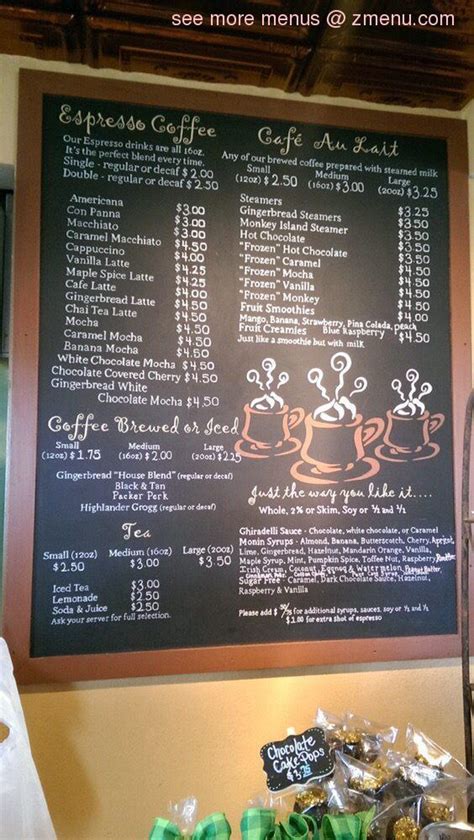 see more menus @ zmenu.com
Espresso Coffee
Our Espresso drinks are all 16oz.
It's the perfect blend every time.
Single - regular or decaf $2.00
Double - regular or decaf $2.50
Americana $3.00
Con Panna $3.00
Macchiato
Caramel Macchiato $4.50
Cappuccino $4.00
Vanilla Latte
Maple Spice Latte
Cafe Latte
Gingerbread Latte
Chai Tea Latte
Mocha
Caramel Mocha
Banana Mocha $4.50
White Chocolate Mocha $4.50
Chocolate Covered Cherry $4.50
Gingerbread White
Chocolate Mocha $4.50
Coffee Brewed or Iced
Small Medium Large
(12oz) $1.75 (16oz) $2.00 (20oz) $2.25
Gingerbread "House Blend" (regular or decaf)
Black & Tan
Packer Perk
Highlander Grogg (regular or decaf)
Tea
Small (12oz) Medium (16oz) Large (20oz)
$2.50 $3.00 $3.50
Iced Tea $3.00
Lemonade $2.50
Soda & Juice $2.50
Ask your server for full selection.
Café Au Lait
Any of our brewed coffee prepared with steamed milk
Small Medium Large
(12oz) $2.50 (16oz) $3.00 (20oz) $3.25
Steamers $3.25
Gingerbread Steamers
Monkey Island Steamer
Hot Chocolate
"Frozen" Hot Chocolate
"Frozen" Caramel
"Frozen" Mocha
"Frozen" Vanilla
"Frozen" Monkey
Fruit Smoothies $4.50
Mango, Banana, Strawberry, Pina Colada, peach
Fruit Creamies Blue Raspberry $4.50
Just like a smoothie but with milk
Just the way you like it....
Whole, 2% or Skim, Soy or ½ and ½
Ghiradelli Sauce - Chocolate, white chocolate, or Caramel
Monin Syrups - Almond, Banana, Butterscotch, Cherry, Apricot,
Lime, Gingerbread, Hazelnut, Mandarin Orange, Vanilla,
Maple Syrup, Mint, Pumpkin Spice, Toffee Nut, Raspberry
Irish Cream, Coconut, Eggnog & Watermelon
Sugar Free - Caramel, Dark Chocolate Sauce, Hazelnut,
Raspberry & Vanilla
Please add for additional syrups, sauces, soy or ½ and ½
$1.00 for extra shot of espresso
Chocolate
Cake Pops